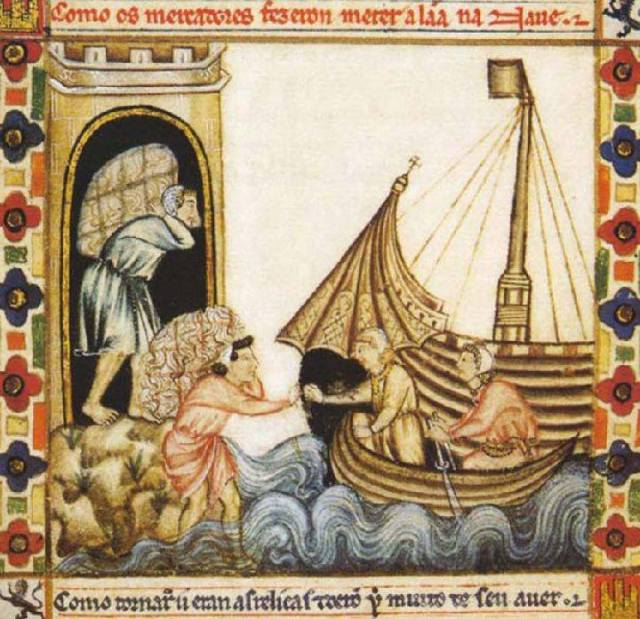 Como os mercadores fezeron meter a lãa na Naue.
Como tornar eran as relicas todo muito de seu auer.